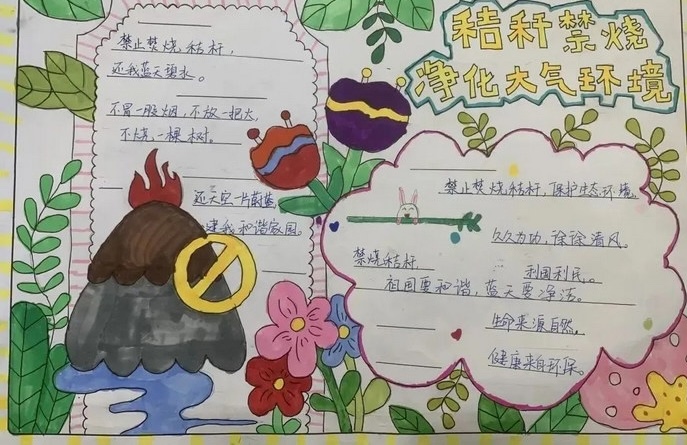 秸秆禁烧
净化大气环境
禁止焚烧秸秆，
还我蓝天碧水。
不冒一股烟，不放一把火，
不烧一棵树。
还天空一片蔚蓝，
建我和谐家园。
禁止焚烧秸秆，保护生态环境。
久久为功，徐徐清风。
禁烧秸秆，
利国利民。
祖国要和谐，蓝天要净洁。
生命来源自然，
健康来自环保。